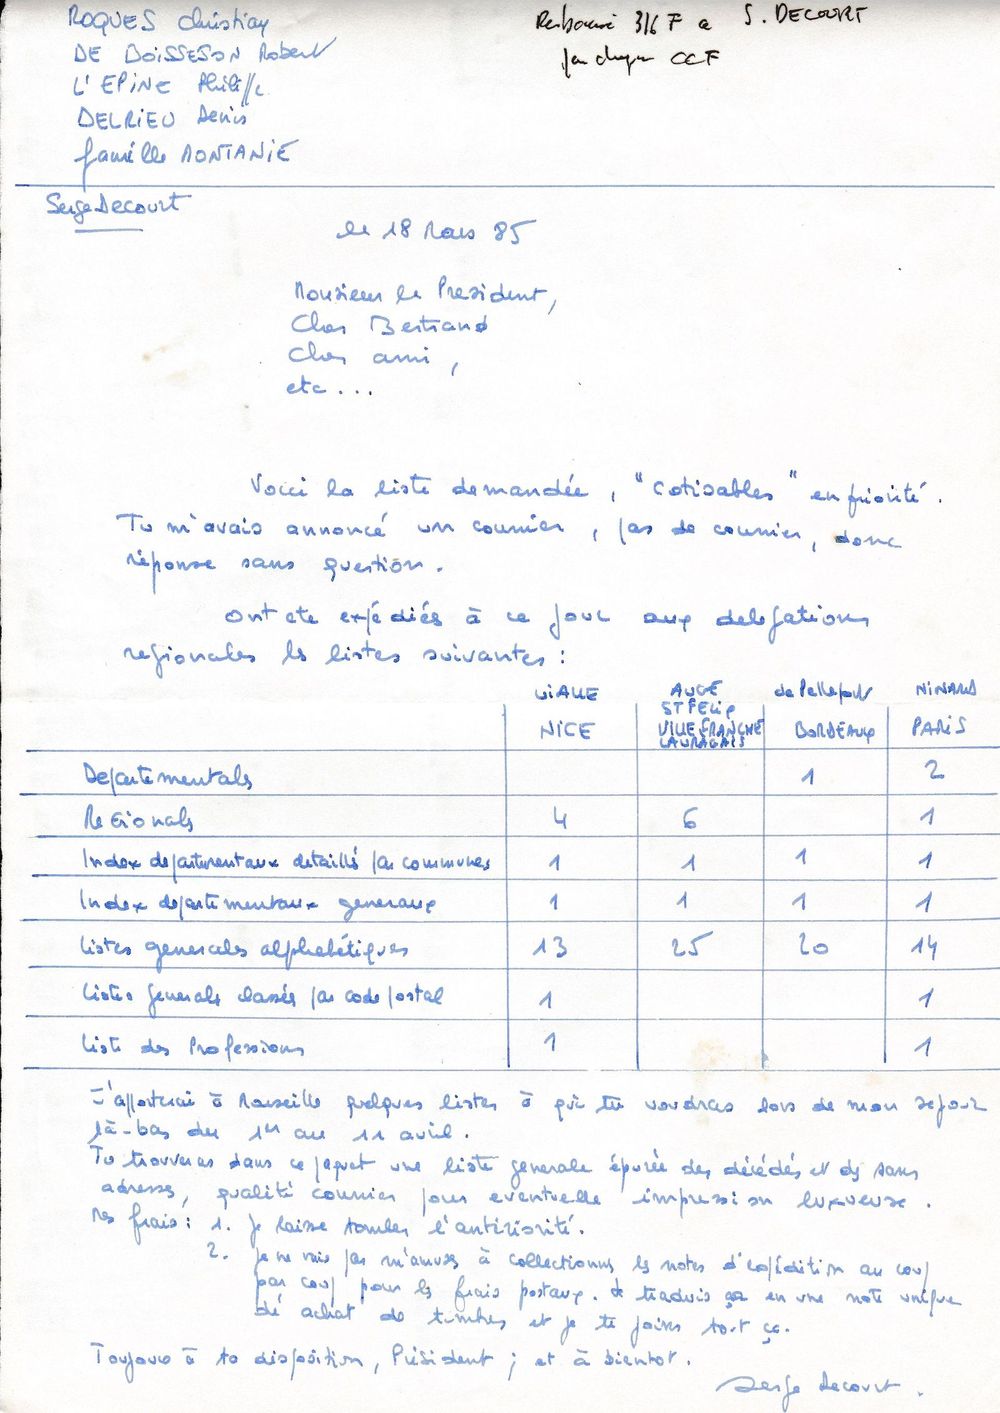 ROQUES Christian
DE BOISSESON Robert
L'EPINE Philippe
DELRIEU Denis
famille MONTANIÉ
Remboursé 316 F a S. DECOURT
par cheque CCF
Serge Decourt
le 18 Mars 85
Monsieur le President,
Cher Bertrand
Cher ami,
etc...
Voici la liste demandée, "cotisables" en priorité.
Tu m'avais annoncé un courrier, pas de courrier, donc
réponse sans question.
Ont ete expédiés à ce jour aux delegations
regionales les listes suivantes :
VIALLE AUGÉ de Pelleport NINARD
ST FELIX
NICE VILLEFRANCHE BORDEAUX PARIS
LAURAGAIS
Departementals 1 2
Regionals 4 6 1
Index departementaux detaillé par communes 1 1 1 1
Index departementaux generaux 1 1 1 1
Listes generales alphabétiques 13 25 20 14
Listes generals classés par code postal 1 1
Liste des Professions 1 1
J'apporterai à Marseille quelques listes à qui tu voudras lors de mon sejour
là-bas du 1er au 11 avril.
Tu trouveras dans ce paquet une liste generale épurée des décédés et des sans
adresses, qualité courrier pour eventuelle impression luxueuse.
Mes frais : 1. Je laisse tomber l'antériorité.
2. Je ne vais pas m'amuser à collectionner les notes d'expédition au coup
par coup pour les frais postaux. Je traduis ça en une note unique
de achat de timbres et je te joins tout ça.
Toujours à ta disposition, Président ; et à bientot.
Serge Decourt.